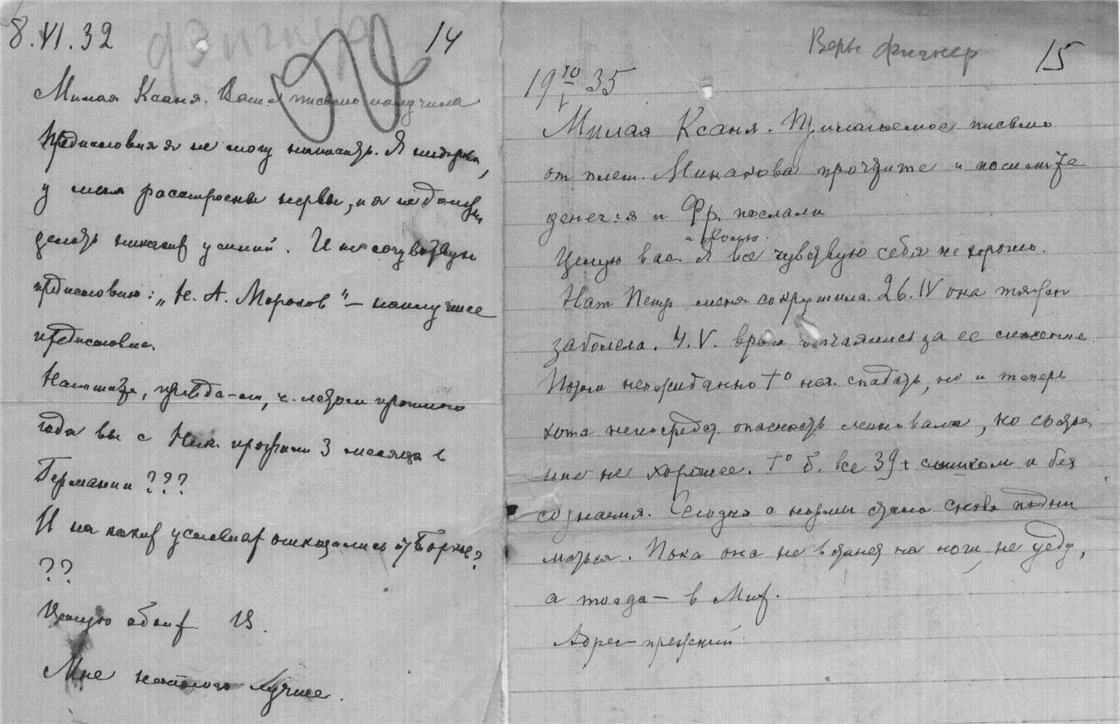 8.VI.32
14
Милая Ксаня. Ваше письмо получила
Предисловия я не могу написать. Я нездорова,
у меня расстроены нервы, и я не должна
делать никаких усилий. И не сочувствую
предисловию: „Н. А. Морозов" – наилучшее
предисловие.
Напишите, правда-ли, ч. летом прошлого
года вы с Ник. прожили 3 месяца в
Германии ???
И на каких условиях отказались от Борка?
??
Целую обоих В.
Мне немного лучше.
Веры Фигнер
15
19 35
Милая Ксаня. Прилагаемое письмо
от плем. Минакова прочтите и пошлите
денег: я и Фр. послали
Целую вас. Я все чувствую себя не хорошо.
Нат Петр меня сокрушила. 26.IV она тяжко
заболела. 4.V. врачи отчаялись за ее спасение.
Потом неожиданно t° нач. спадать, но и теперь
хотя непосредст. опасность миновала, но состоя
ние не хорошее. t° б. все 39 с лишком и без
сознания. Сегодня с нормы стала снова подни
маться. Пока она не встанет на ноги, не уеду,
а тогда – в Мих.
Адрес прежний